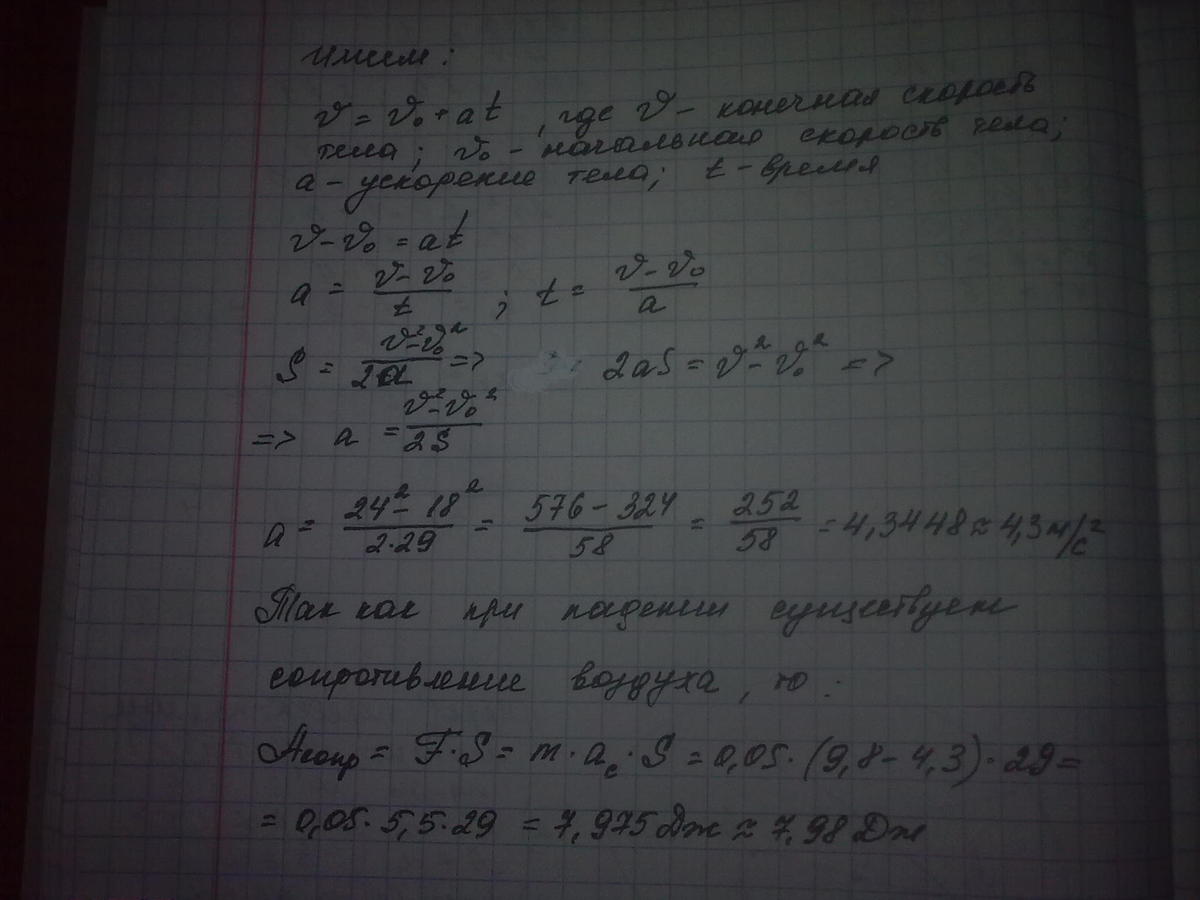 Имеем:
v = v₀ + at , где v – конечная скорость
тела; v₀ – начальная скорость тела;
a – ускорение тела; t – время
v – v₀ = at
a = (v – v₀)/t ; t = (v – v₀)/a
S = (v² – v₀²)/2a => 2aS = v² – v₀² =>
=> a = (v² – v₀²)/2S
a = (24² – 18²)/(2·29) = (576 – 324)/58 = 252/58 = 4,3448 ≈ 4,3 м/с²
Так как при падении существует
сопротивление воздуха, то:
Aсопр = F·S = m·a_c·S = 0,05·(9,8 – 4,3)·29 =
= 0,05·5,5·29 = 7,975 Дж ≈ 7,98 Дж